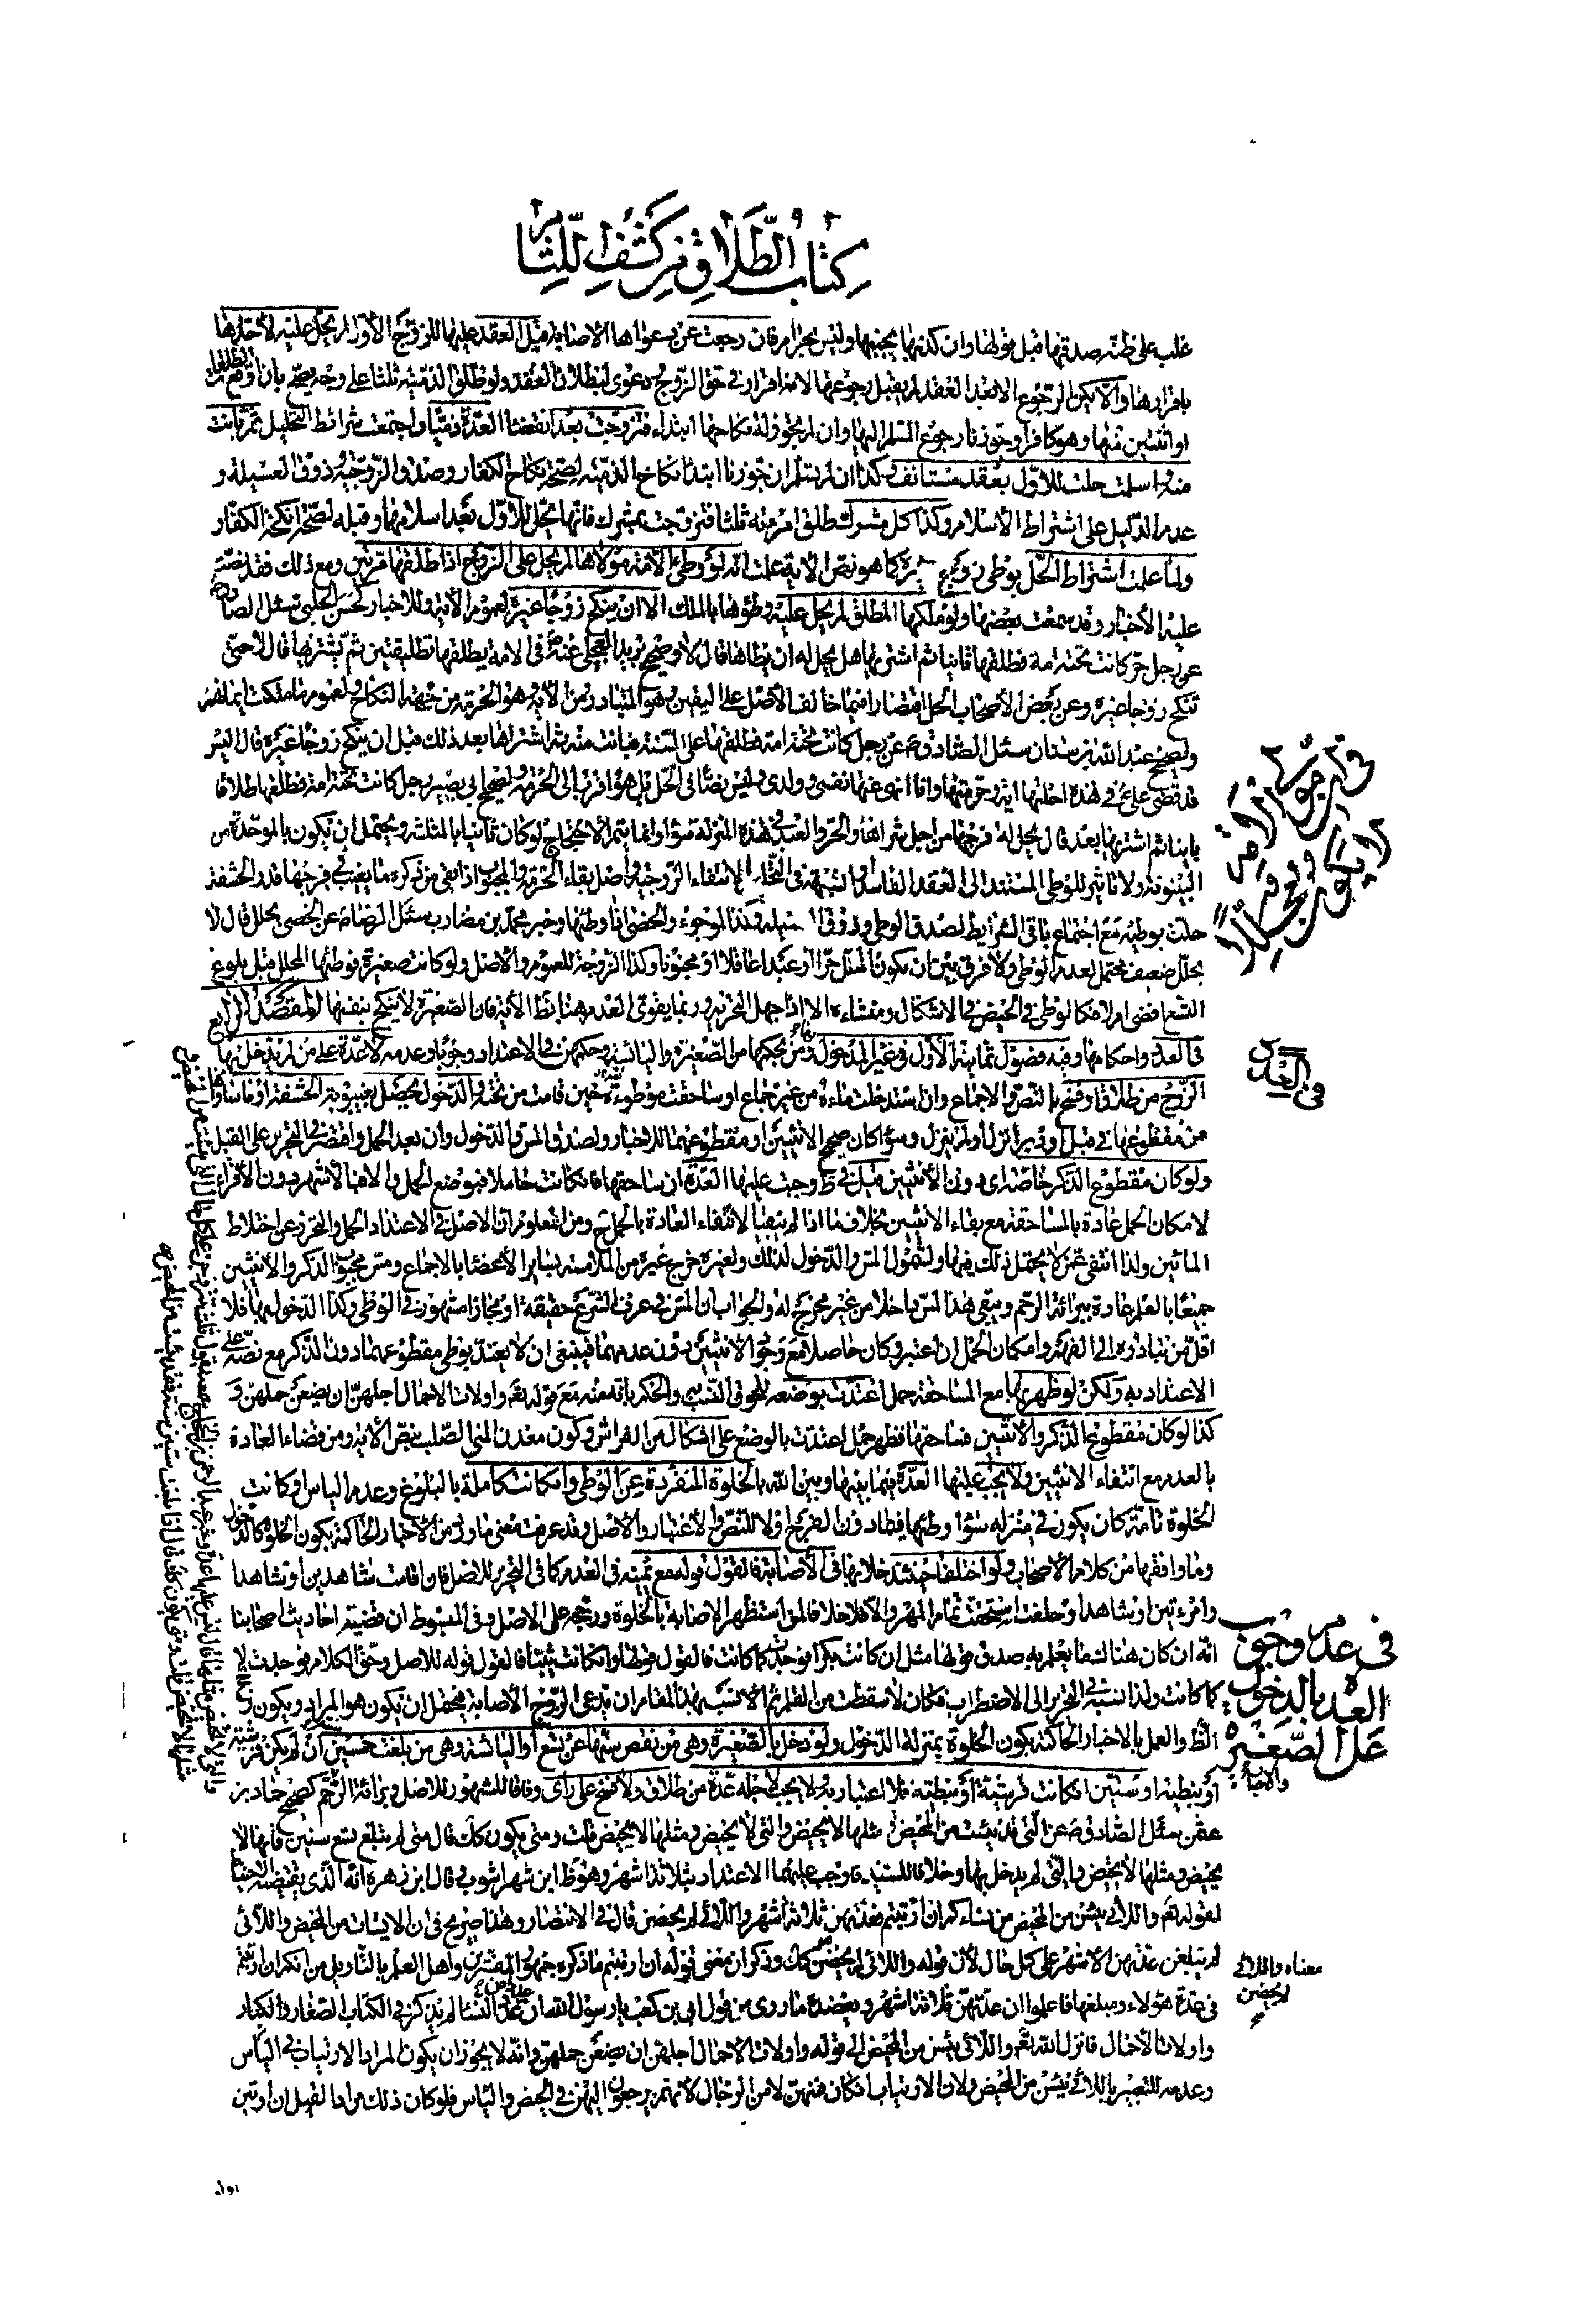 كتاب الطلاق من كشف اللثام
غلب على ظنه صدقها قبل قولها وان كذبها يجتنبها وليس بحرام فان رجعت عن دعواها الاصابة قبل العقد عليها للزوج الاول لم يحل عليه لاخذها
باقرارها والا يكن الرجوع الا بعد العقد لم يقبل رجوعها لانه اقرار في حق الزوج ودعوى لبطلان العقد ولو طلق الذمية ثلثا على وجه يصح بان اوقع
او اثنتين منها وهو كافر او جوزنا رجوع المسلم اليها وان لم يجوز له نكاحها ابتداء فتزوجت بعد انقضاء العدة ذميا واجتمعت شرائط التحليل ثم بانت
منه واسلمت حلت للاول بعقد مستانف وكذا ان لم يسلم ان جوزنا ابتداء نكاح الذمية لصحة نكاح الكفار وصدق الزوجية وذوق العسيلة و
عدم الدليل على اشتراط الاسلام وكذا كل مشرك طلق امرءته ثلثا فتزوجت بمشرك فانها تحل للاول بعد اسلامهما وقبله لصحة انكحة الكفار
ولما علمت اشتراط الحل بوطي زوج غيره كما هو نص الاية علمت انه لو وطئ الامة مولاها لم يحل على الزوج اذا طلقها مرتين ومع ذلك فقد نصت
عليه الاخبار وقد سمعت بعضها ولو ملكها المطلق لم يحل عليه وطؤها بالملك الا ان ينكح زوجا غيره لعموم الاية وللاخبار كحسن الحلبي سئل الصادق
عن رجل حر كانت تحته امة فطلقها بائنا ثم اشتريها هل يحل له ان يطاها قال لا وصحيح بريد العجلي عنه في الامة يطلقها تطليقتين ثم يشتريها قال لا حتى
تنكح زوجا غيره وعن بعض الاصحاب الحل اقتصارا فيما خالف الاصل على اليقين وهو المتبادر من الاية وهو الحرمة من جهة النكاح ولعموم ما ملكت ايمانهم
ولصحيح عبد الله بن سنان سئل الصادق عن رجل كانت تحته امة فطلقها على السنة فبانت منه ثم اشتراها بعد ذلك قبل ان ينكح زوجا غيره قال اليس
قد قضى علي في هذه احلتها اية وحرمتها وانا انهى عنها نفسي وولدي وليس نصا في الحل بل هو اقرب الى الحرمة ولصحيح ابي بصير رجل كانت تحته امة فطلقها طلاقا
باينا ثم اشتريها بعد قال يحل له فرجها من اجل شراها والحر والعبد في هذه المنزلة سواء وانما يتم الاحتجاج لو كان ثانيا بالمثلثة ويحتمل ان يكون بالموحدة من
البينونة ولا تاثير للوطي المستند الى العقد الفاسد او الشبهة في لانتفاء الزوجية واصل بقاء الحرمة والمجبوب اذا بقي من ذكره ما يغيب في فرجها قدر الحشفة
حلت بوطيه مع اجتماع باقي الشرايط لصدق الوطي وذوق وكذا الموجوء والخصي اذا وطئها وخبر محمد بن مضارب سئل الرضا عن الخصي يحلل قال لا
يحلل ضعيف محتمل لعدم الوطي ولا فرق بين ان يكون المحلل حرا او عبدا عاقلا او مجنونا وكذا الزوجة للعموم والاصل ولو كانت صغيرة فوطئها المحلل قبل بلوغ
التسع افضى ام لا فكالوطي في الحيض في الاشكال ومنشاءه الا اذا جهل التحريم وربما يقوى العدم هنا بان الاية فان الصغيرة لا ينكح بنفسها المقصد الرابع
في العدد واحكامها وفيه فصول ثمانية الاول في غير المدخول بها ومن بحكمها من الصغيرة واليائسة وحكمهن في الاعتداد وجوبا وعدمه لا عدة على من لم يدخل بها
الزوج من طلاق او فسخ بالنص والاجماع وان استدخلت ماءه من غير جماع او ساحقت موطوءة حين قامت من تحته والدخول يحصل بغيبوبة الحشفة او مساواها
من مقطوعها في قبل او دبر انزل او لم ينزل وسواء كان صحيح الانثيين او مقطوعهما للاخبار ولصدق المس والدخول وان بعد الحمل واقتصر في التحرير على القبل
ولو كان مقطوع الذكر خاصة اي دون الانثيين قيل في ط وجبت عليها العدة ان ساحقها فان كانت حاملا فبوضع الحمل والا فبالاشهر دون الاقراء
لامكان الحمل عادة بالمساحقة مع بقاء الانثيين بخلاف ما اذا لم يبقيا لانتفاء العادة بالحمل ح ومن المعلوم ان الاصل في الاعتداد الحمل والتحرز عن اختلاط
المائين ولذا انتفى عمن لا يحتمل ذلك فيها ولشمول المس والدخول لذلك ولغيره خرج غيره من الملامسة بساير الاعضاء بالاجماع ومس مجبوب الذكر والانثيين
جميعا بالعلم عادة ببراءة الرحم ويبقى هذا المس داخلا من غير مخرج له والجواب ان المس في عرف الشرع حقيقة او مجاز مشهور في الوطي وكذا الدخول بها فلا
اقل من تبادره الى الفهم وامكان الحمل ان اعتبر وكان حاصلا مع وجود الانثيين دون عدمهما فينبغي ان لا يعتد بوطي مقطوعهما دون الذكر مع نصه على
الاعتداد به ولكن لو ظهر بها مع المساحقة حمل اعتدت بوضعه للحوق النسب والحكم بانه منه مع قوله تعالى واولات الاحمال اجلهن ان يضعن حملهن و
كذا لو كان مقطوع الذكر والانثيين فساحقها فظهر حمل اعتدت بالوضع على اشكال من الفراش وكون معدن المني الصلب بنص الاية ومن قضاء العادة
بالعدم مع انتفاء الانثيين ولا يجب عليها العدة فيما بينها وبين الله بالخلوة المنفردة عن الوطي وان كانت كاملة بالبلوغ وعدم الياس او كانت
الخلوة تامة كان يكون في منزله سواء وطئها فيما دون الفرج او لا للنص والاعتبار والاصل وقد عرفت معنى ما ورد من الاخبار الحاكمة بكون الخلوة كالدخول
وما وافقها من كلام الاصحاب ولو اختلفا ح بعد خلائهما في الاصابة فالقول قوله مع يمينه في العدم كما في التحرير للاصل فان اقامت شاهدين او شاهدا
وامرءتين او شاهدا وحلفت استحقت تمام المهر والا فلا خلافا لمن استظهر الاصابة بالخلوة ورجحه على الاصل وفي المبسوط ان قضية احاديث اصحابنا
انه ان كان هناك ما يعلم به صدق قولها مثل ان كانت بكرا فوجدت كما كانت فالقول قولها وان كانت ثيبا فالقول قوله للاصل وحق الكلام فوجدت لا
كما كانت ولذا نسبه في التحرير الى الاضطراب فكان لا سقطت من القلم ثم الانسب بهذا المقام ان تدعي الزوج الاصابة فيحتمل ان يكون هو المراد ويكون
الظ والعمل بالاخبار الحاكمة بكون الخلوة بمنزلة الدخول ولو دخل بالصغيرة وهي من نقص سنها عن تسع او اليائسة وهي من بلغت خمسين ان لم يكن قرشية
او نبطية او ستين ان كانت قرشية او نبطية فلا اعتبار به ولا يجب لاجله عدة من طلاق ولا فسخ على راى وفاقا للمشهور للاصل وبراءة الرحم كصحيح حماد بن
عثمن سئل الصادق عن التي قد يئست من المحيض ومثلها لا يحيض والتي لا يحيض ومثلها لا يحيض قلت ومتى يكون كك قال متى لم يبلغ تسع سنين فانها لا
يحيض ومثلها لا يحيض والتي لم يدخل بها وخلافا للسيد فاوجب عليهما الاعتداد بثلاثة اشهر وهو ظ ابن شهراشوب قال ابن زهرة انه الذي يقتضيه الاحتياط
لقوله تعالى واللائي يئسن من المحيض من نساءكم ان ارتبتم فعدتهن ثلاثة اشهر واللائي لم يحضن قال في الانتصار وهذا صريح في ان الايسات من المحيض واللائي
لم يبلغن عدتهن الاشهر على كل حال لان قوله واللائي لم يحضن كك وذكر ان معنى قوله ان ارتبتم ما ذكره جمهور المفسرين واهل العلم بالتاويل من انكم ان ارتبتم
في عدة هؤلاء ومبلغها فاعلموا ان عدتهن ثلاثة اشهر ويعضده ما روي من قول ابي بن كعب يا رسول الله ان عددا من عدد النساء لم يذكر في الكتاب الصغار والكبار
واولات الاحمال فانزل الله تعالى واللائي يئسن من المحيض الى قوله واولات الاحمال اجلهن ان يضعن حملهن وانه لا يجوز ان يكون المراد الارتياب في الياس
وعدمه للتعبير باللائي يئسن من المحيض ولان الارتياب ان كان فمنهن لا من الرجال لانهم يرجعون اليهن في الحيض والياس فلو كان ذلك مرادا لقيل ان ارتبن
في العدد
في عدم وجوب
العدة بالدخول
على الصغيرة
معناه واللائي
لم يحضن